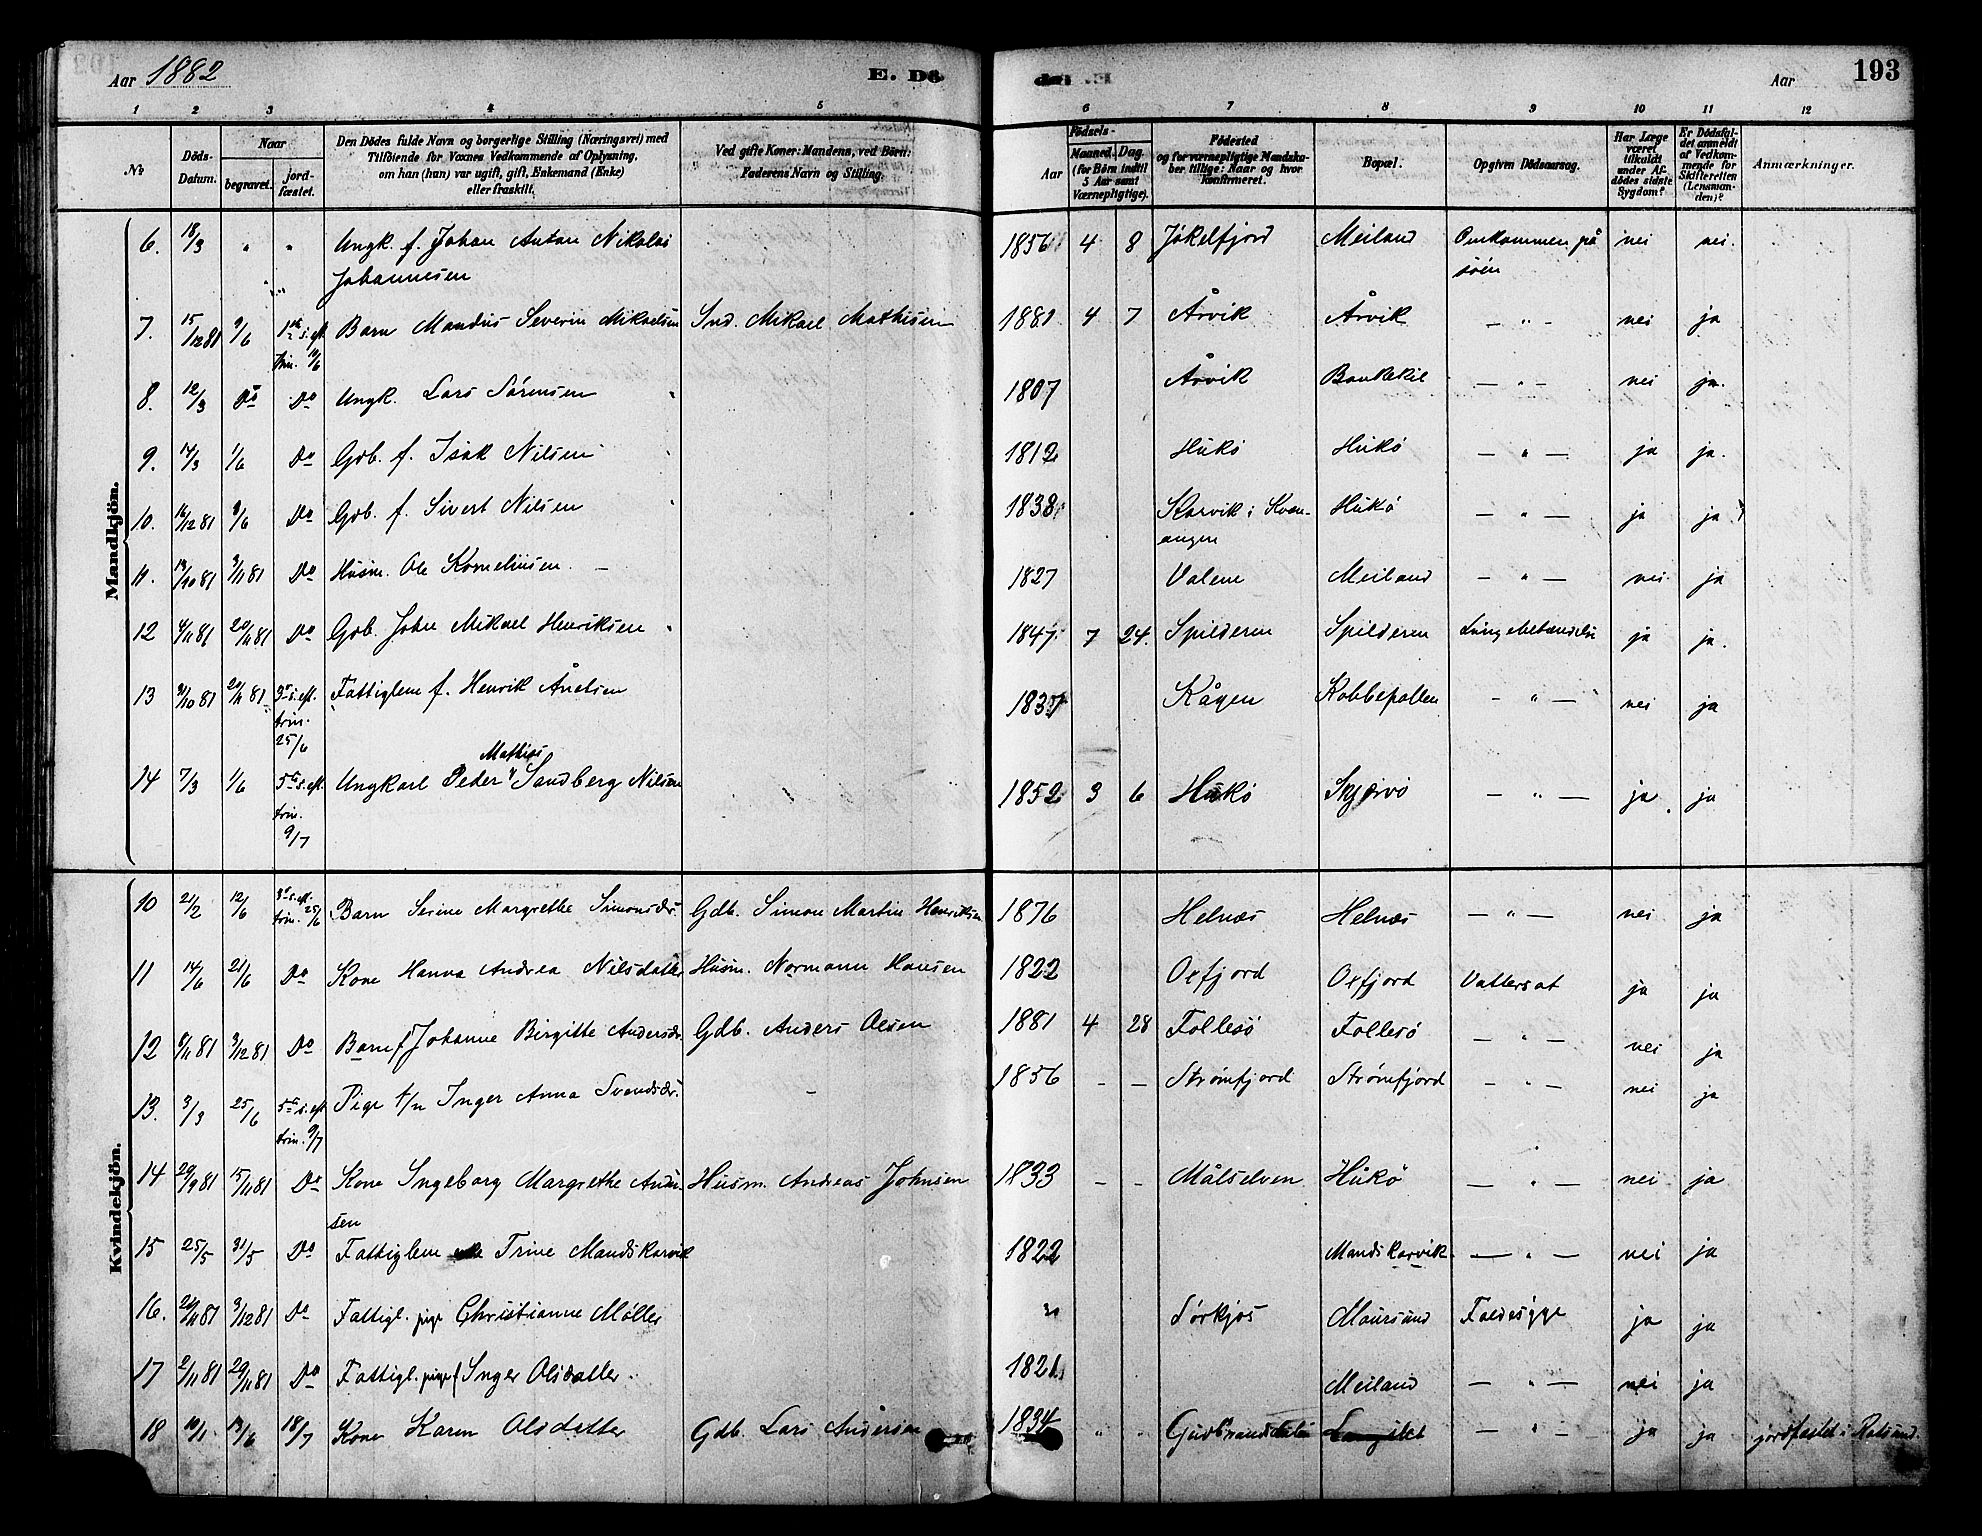 Aar 1882 E. Dö den. E. Aar 193
1 2 3 4 5 6 7 8 9 10 11 12
No
Döds-Datum.
Naar
begravet.
jord-fæstet.
Den Dödes fulde Navn og borgerlige Stilling (Næringsvei) med
Tilföiende for Voxnes Vedkommende af Oplysning,
om han (hun) var ugift, gift, Enkemand (Enke)
eller fraskilt.
Ved gifte Koner: Mandens, ved Börn:
Faderens Navn og Stilling.
Födsels-
Aar
Maaned. Dag.
(for Børn indtil
5 Aar samt
Værnepligtige).
Födested
og for værnepligtige Mandska-
ber tillige: Naar og hvor
konfirmeret.
Bopæl.
Opgiven Dödsaarsag.
Har Læge
været
tilkaldt
under Af-
dödes sidste
Sygdom?
Er Dödsfal-
det anmeldt
af Vedkom-
mende for
Skifteretten
(Lensman-
den)?
Anmærkninger.
Mandkjön.
6. 18/3 " " Ungk. f. Johan Anton Nikolai 1856 4 8 Jökelfjord Meiland Omkommen på nei nei.
Johannesen söen
7. 15/12 81 9/6 1ste s. eft. Barn Mandus Severin Mikaelsen Ind. Mikael Mathisen 1881 4 7 Årvik Årvik — " — nei ja
trin. 11/6
8. 12/3 Do Do Ungk. Lars Sörensen 1807 Årvik Baukekil — " — nei ja.
9. 14/3 1/6 Do Gdb. f. Isak Nilsen 1812 Hukö Hukö — " — ja ja.
10. 16/12 81 8/6 Do Gdb. f. Sivert Nilsen 1838 Karvik i Kvæn- Hukö — " — ja ja
angen
11. 19/10 81 3/11 81 Do Husm. Ole Korneliusen. — 1827 Valene Meiland — " — nei ja
12 4/11 81 20/11 81 Do Gdb. John Mikael Henriksen 1847 7 24. Spilderen Spilderen Lungebetændelse ja ja.
13 9/10 81 20/11 81 3die s. eft. Fattiglem f. HenrikÅnetsen 1837 Kågen Kobbepollen — " — nei ja
trin.
25/6
Mathias
14 7/3 1/6 5te s. eft. Ungkarl Peder Sandberg Nilsen 1852 3 6 Hukö Skjervö — " — ja ja
trin.
9/7
Kvindekjön.
10 21/2 12/6 3die s. eft. Barn Serine Margrethe Simonsdtr. Gdb. Simon Martin Henriksen 1876 Helnæs Helnæs — " — nei ja
trin. 25/6
11 14/6 21/6 Do Kone Hanna Andrea Nilsdatter Husm. Normann Hansen 1822 Oxfjord Oxfjord Vattersot ja ja
12 8/11 81 3/12 81 Do Barn f Johanne Birgitte Andersdr. Gdb. Anders Olsen 1881 4 28 Follesö Follesö — " — nei ja
13. 3/3 25/6 5te s. eft. Pige t/n Inger Anna Svendsdr. — 1856 — — Strömfjord Strömfjord — " — nei ja
trin. 9/7
14 29/9 81 15/11 81 Do Kone Ingeborg Margrethe Andr- Husm. Andreas Johnsen 1833 — — Målselven Hukö — " — nei ja
sen
15 25/5 31/5 Do Fattiglem Trine Mandskarvik 1822 Mandskarvik — " — nei ja
16. 21/11 81 3/12 81 Do Fattigl. pige Christianne Möller Sörkjos Maursund Faldesyge ja ja
17 2/11 81 29/11 81 Do Fattigl. pige f Inger Olsdatter. 1821 Meiland — " — nei ja
18 10/1 13/6 18/7 Kone Karen Olsdatter Gdb. Lars Andersen 1834 " " Gudbrandsdalen Langslet — " — ja ja jordfæstet i Rotsund.